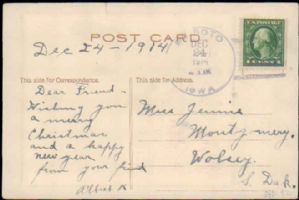 POST CARD
Dec 24-1914
SOTO
DEC
IOWA
U.S. POSTAGE
1 CENT 1
This side for Correspondence.
This side for Address.
Dear Friend-
Wishing you
a merry
Christmas
and a happy
new year
from your friend
Miss Jennie
Montgomery.
Wolsey.
S. Dak.